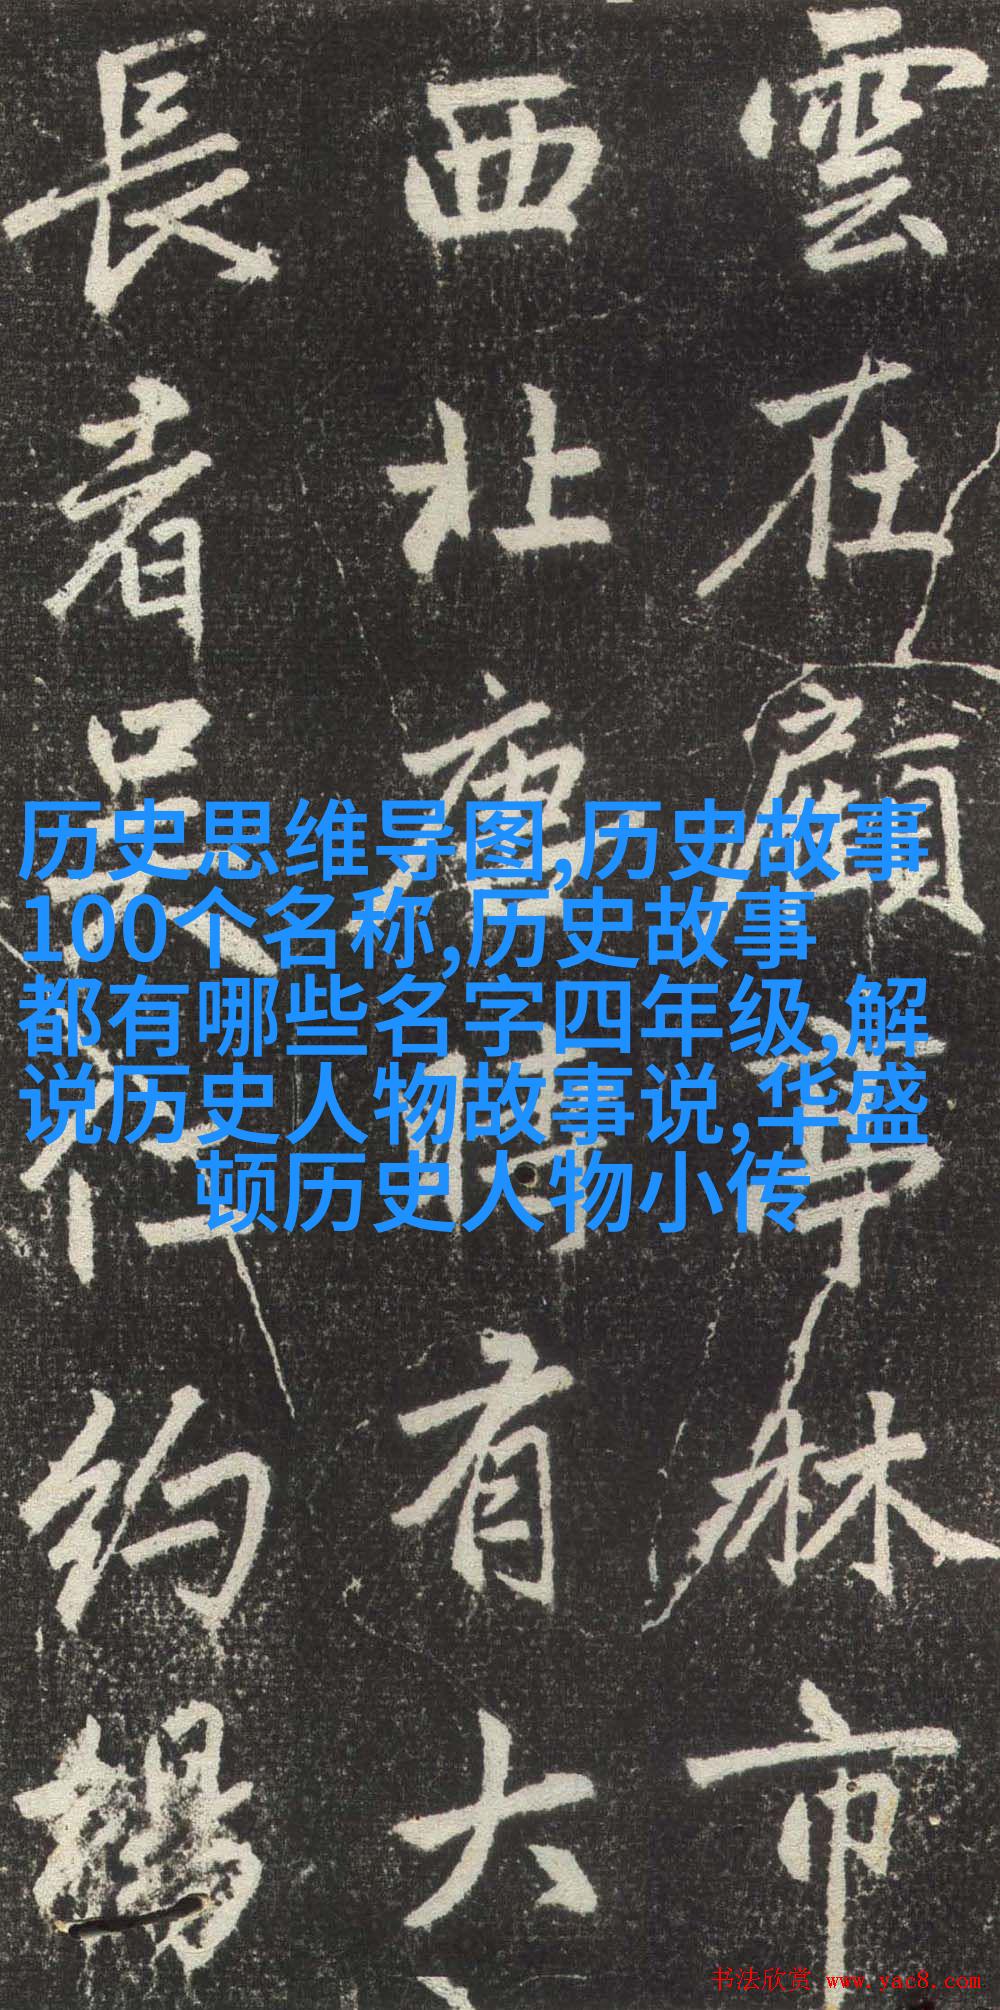 雲在顧亭林市
西北唐時有大
長者吳約
历史思维导图,历史故事
100个名称,历史故事
都有哪些名字四年级,解
说历史人物故事说,华盛
顿历史人物小传
书法欣赏 www.yac8.com